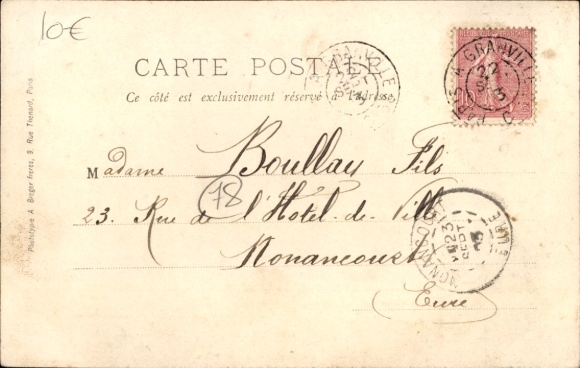 10€
CARTE POSTALE
Ce côté est exclusivement réservé à l'adresse
Madame Boullay Fils
78
23. Rue de l'Hôtel-de-Ville
Nonancourt
Eure
Phototype A Berger Frères, 9, Rue Thénard, Paris
GRANVILLE
PARIS A GRANVILLE
22
NONANCOURT
EURE
23